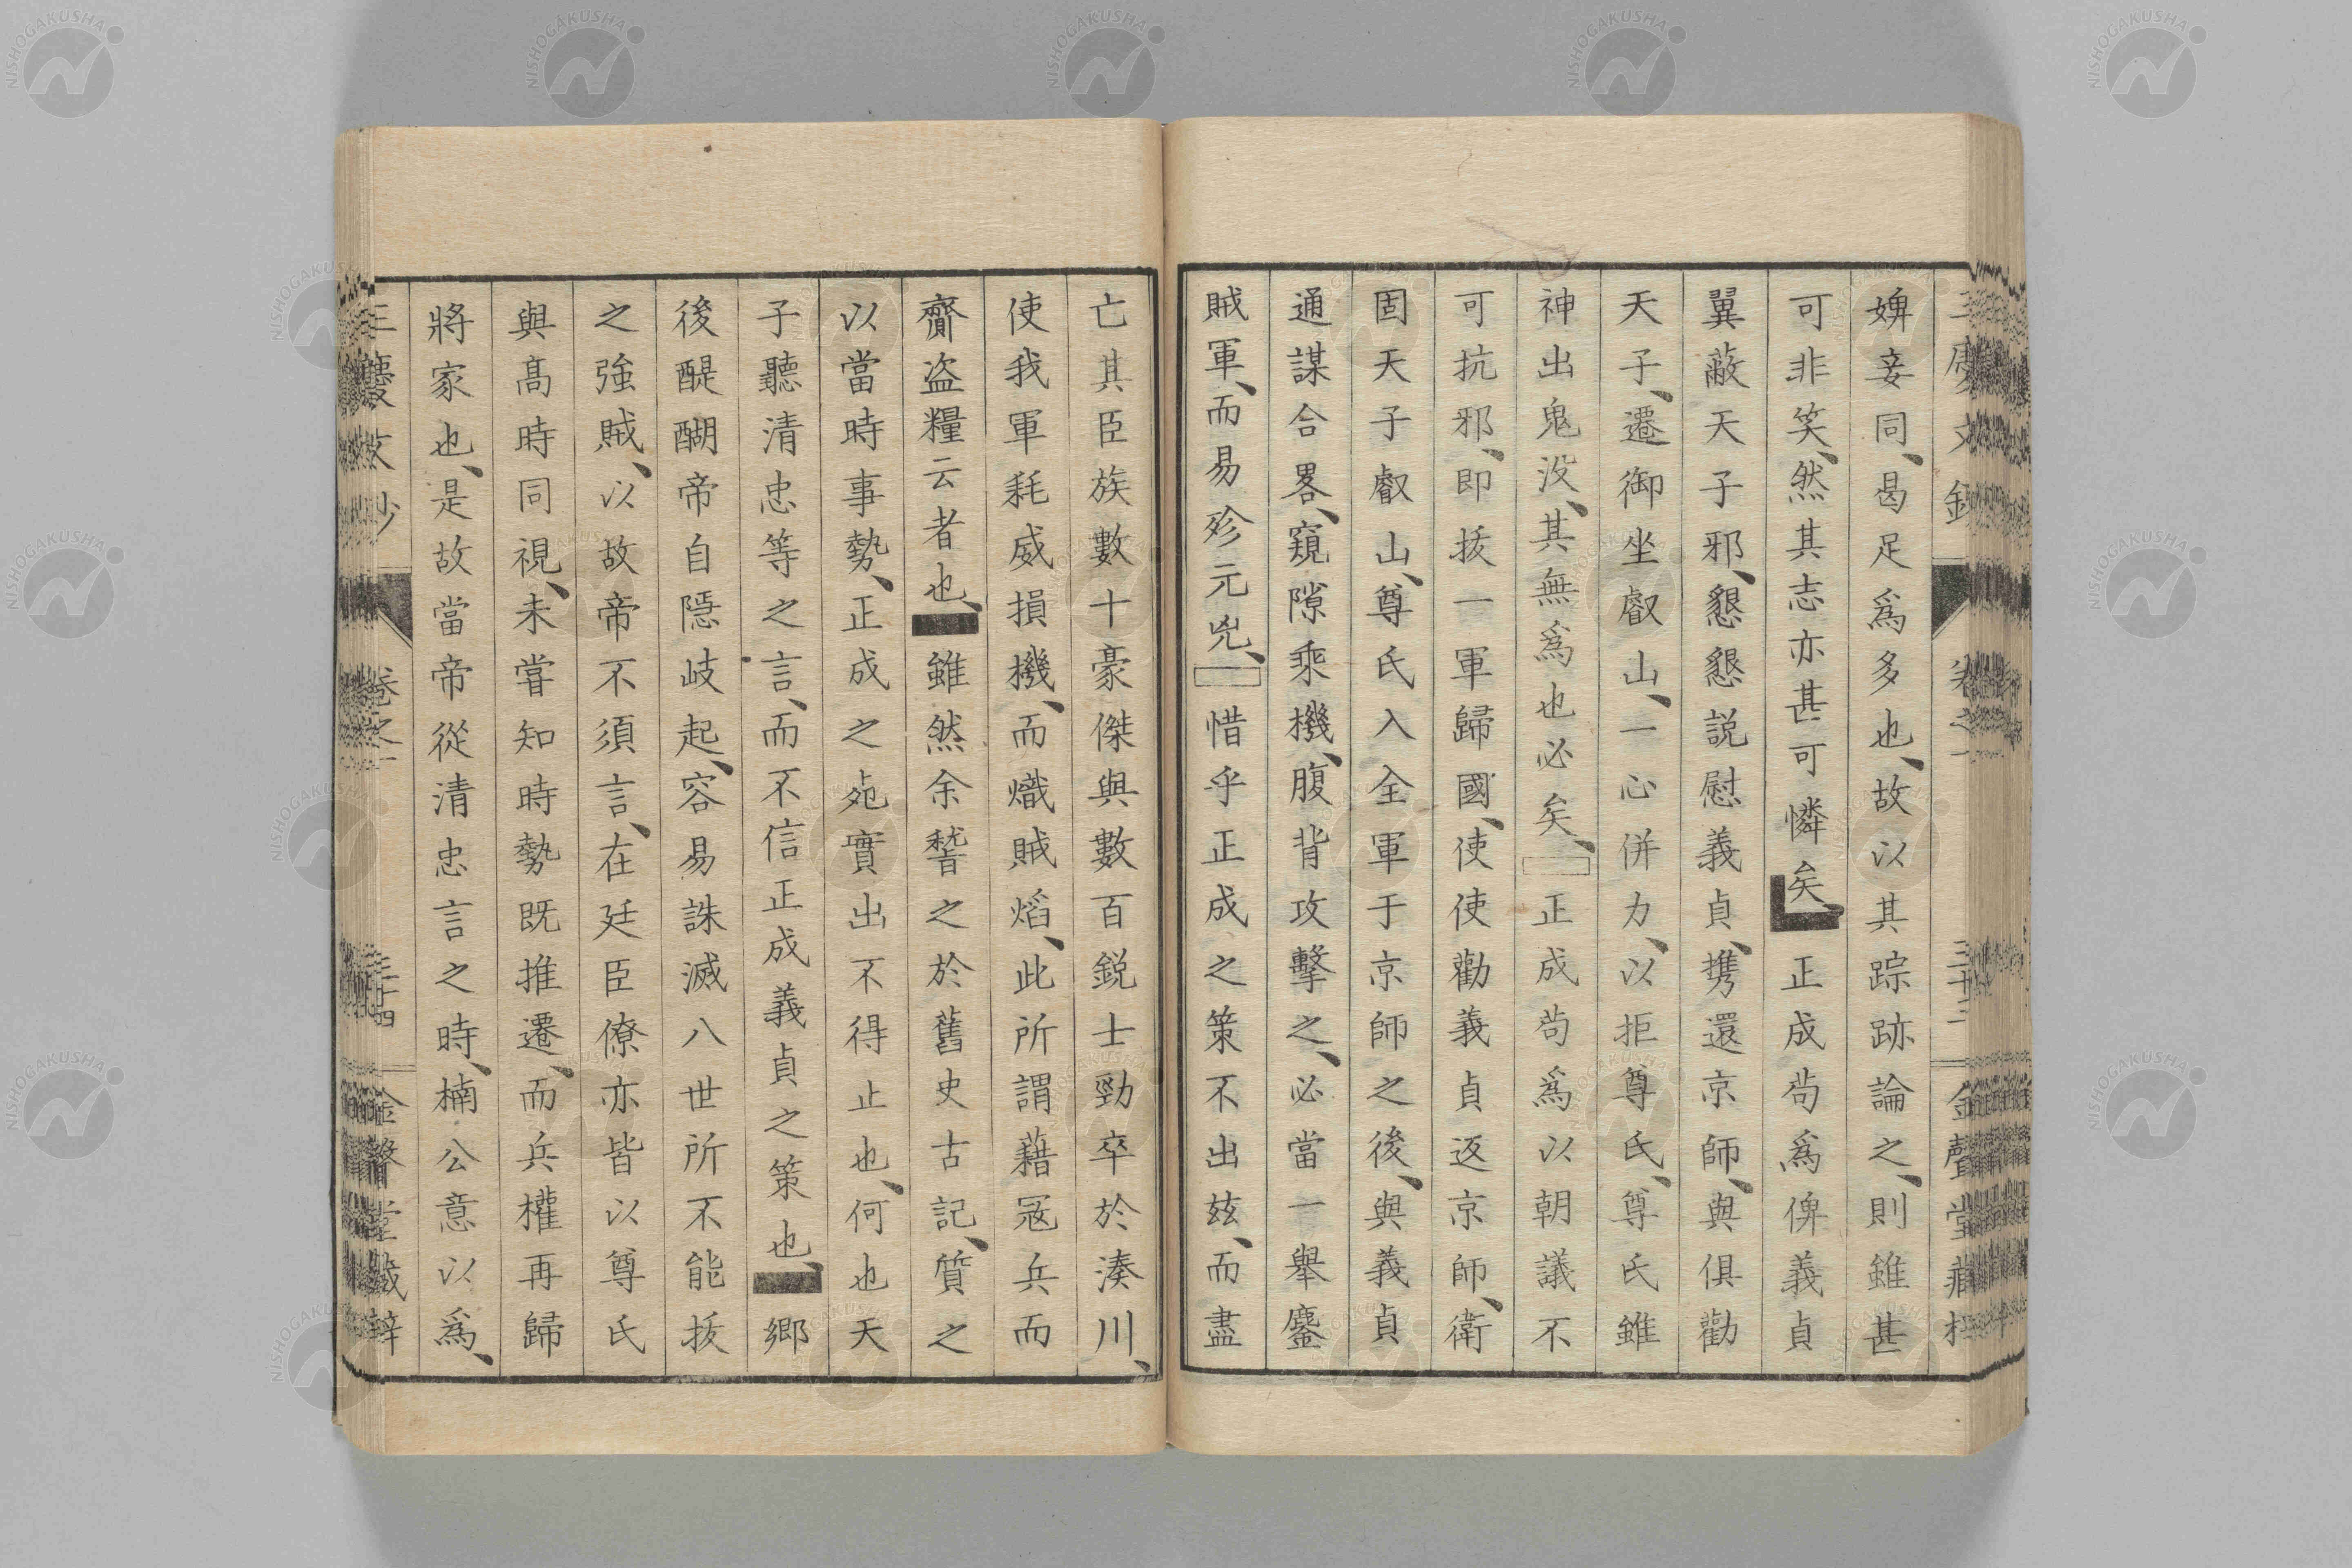 婢妾同、曷足爲多也、故以其踪跡論之、則雖甚
可非笑、然其志亦甚可憐矣、正成苟爲俾義貞
翼蔽天子邪、懇懇説慰義貞、携還京師、與俱勸
天子、遷御坐叡山、一心併力、以拒尊氏、尊氏雖
神出鬼没、其無爲也必矣、正成苟爲以朝議不
可抗邪、即拔一軍歸國、使使勸義貞返京師、衛
固天子叡山、尊氏入全軍于京師之後、與義貞
通謀合畧、窺隙乘機、腹背攻擊之、必當一舉鏖
賊軍、而易殄元兇、惜乎正成之策不出玆、而盡
亡其臣族數十豪傑與數百鋭士勁卒於湊川、
使我軍耗威損機、而熾賊焰、此所謂藉冦兵而
齎盗糧云者也、雖然余瞀之於舊史古記、質之
以當時事勢、正成之死實出不得止也、何也天
子聽清忠等之言、而不信正成義貞之策也、鄉
後醍醐帝自隱岐起、容易誅滅八世所不能拔
之強賊、以故帝不須言、在廷臣僚亦皆以尊氏
與高時同視、未嘗知時勢既推遷、而兵權再歸
將家也、是故當帝從清忠言之時、楠公意以爲、
三慶文鈔
卷之一
三十四
金聲堂藏梓
NISHOGAKUSHA